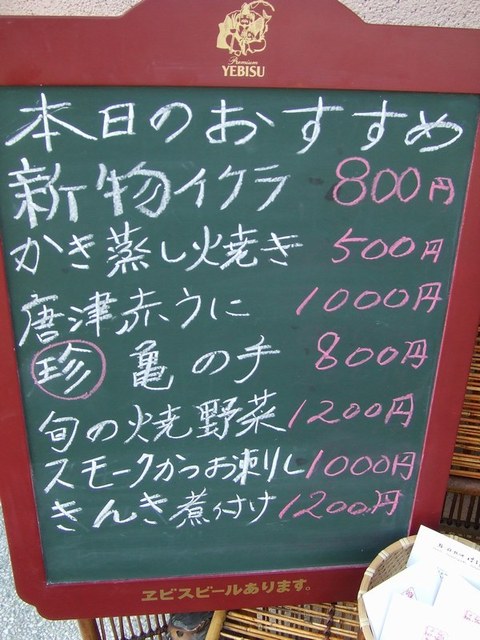 Premium
YEBISU
本日のおすすめ
新物イクラ 800円
かき蒸し焼き 500円
唐津赤うに 1000円
珍 亀の手 800円
旬の焼野菜 1200円
スモークかつお刺し 1000円
きんき煮付け 1200円
ヱビスビールあります。